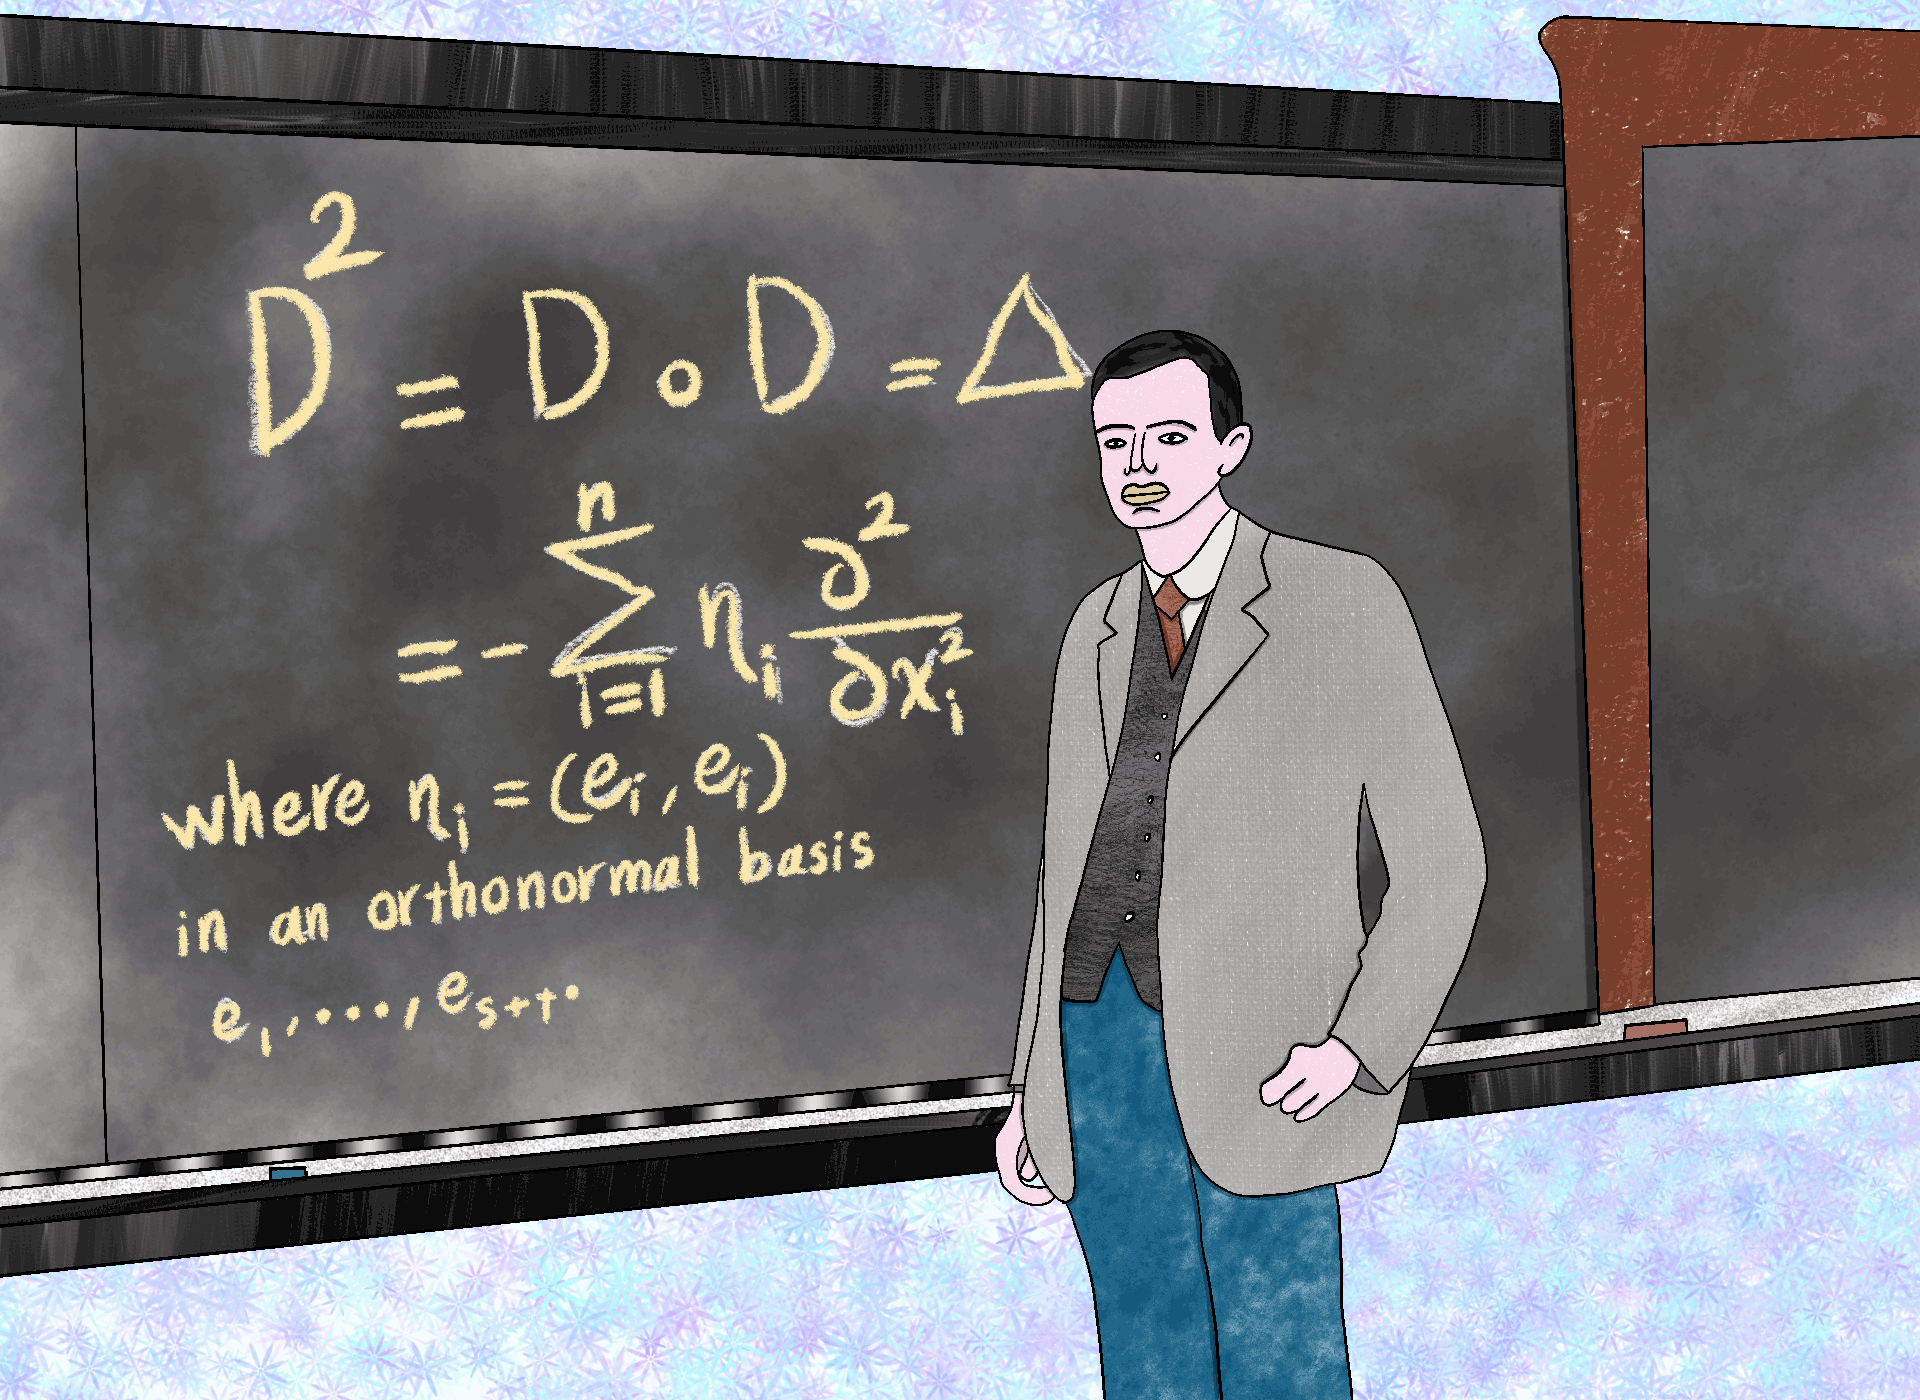 D² = D ∘ D = Δ
= - ∑ᵢ₌₁ⁿ ηᵢ ∂²/∂xᵢ²
where ηᵢ = (eᵢ, eᵢ)
in an orthonormal basis
e₁, ..., eₛ₊ₜ.